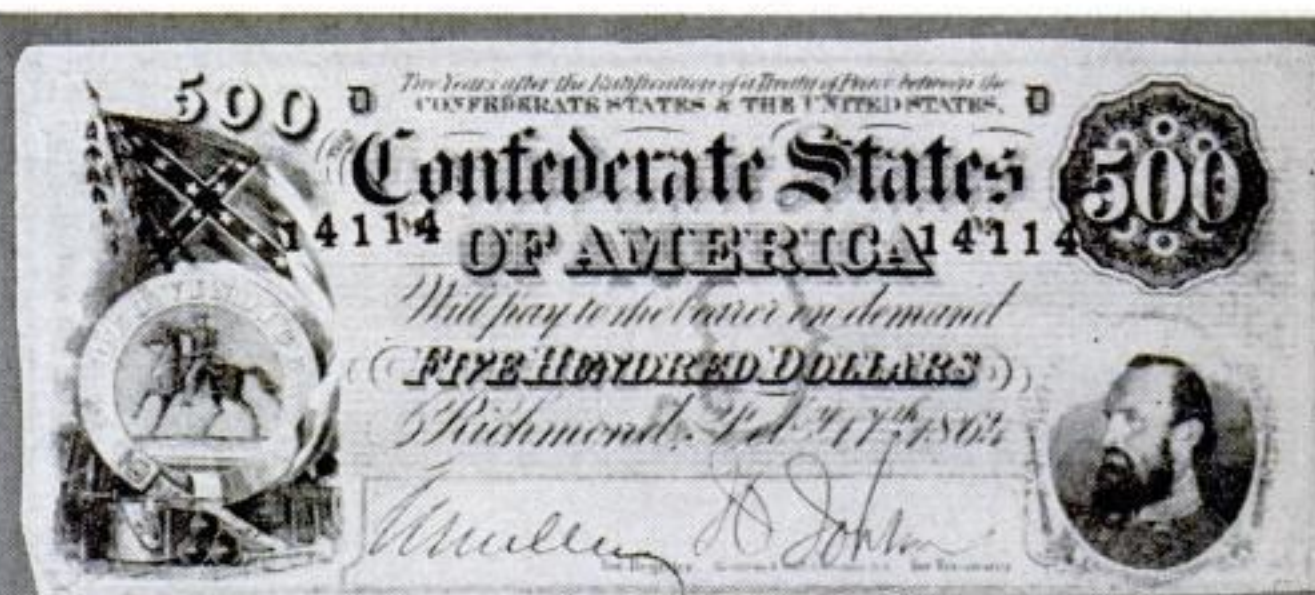 500 D Two Years after the Ratification of a Treaty of Peace between the D
CONFEDERATE STATES & THE UNITED STATES.
The Confederate States 500
14114 OF AMERICA 14114
Will pay to the bearer on demand
FIVE HUNDRED DOLLARS
Richmond, Feby 17th, 1864